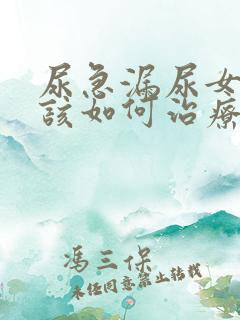 尿急漏尿女
该如何治疗
冯三保
未经同意禁止转载